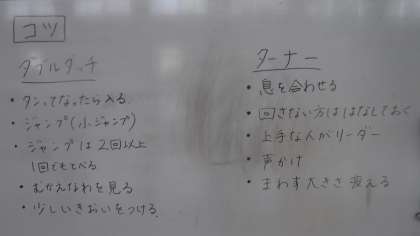 コツ
ダブルダッチ
・タンってなったら入る
・ジャンプ(小ジャンプ)
・ジャンプは2回以上
1回でもとべる
・むかえなわを見る
・少しいきおいをつける
ターナー
・息を合わせる
・回さない方ははなしておく
・上手な人がリーダー
・声かけ
・まわす大きさ変える